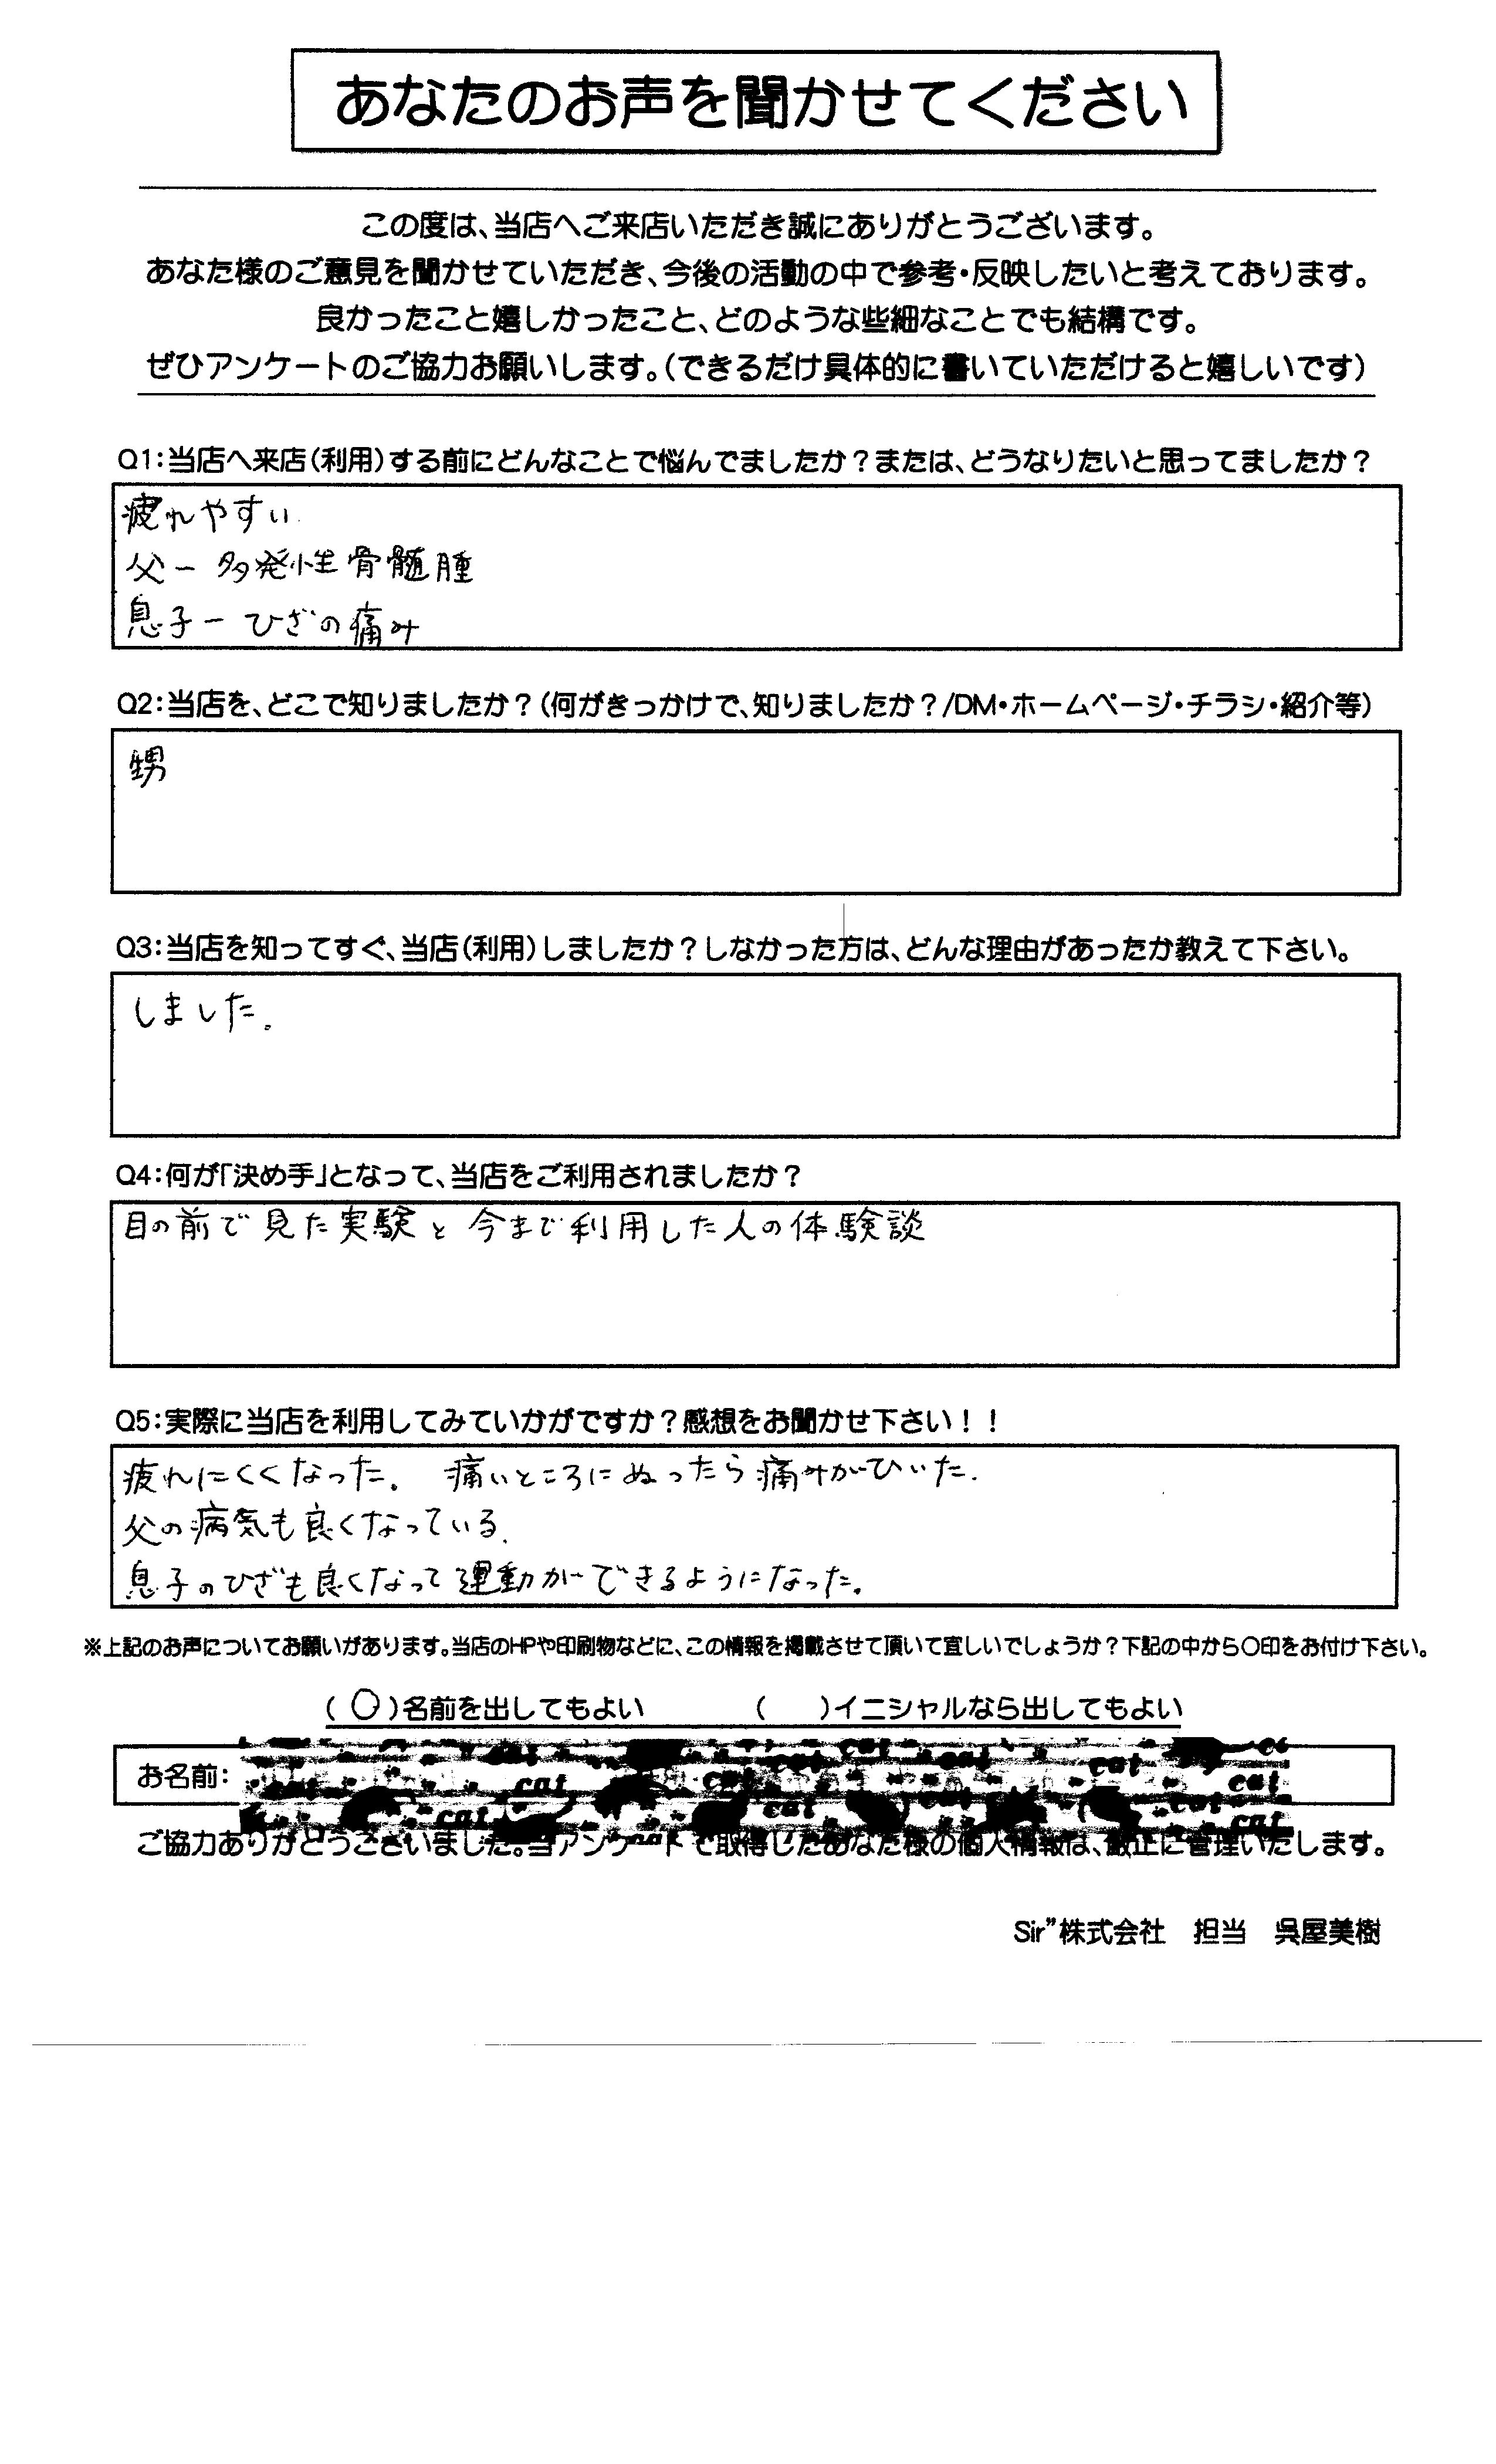 あなたのお声を聞かせてください
この度は、当店へご来店いただき誠にありがとうございます。
あなた様のご意見を聞かせていただき、今後の活動の中で参考・反映したいと考えております。
良かったこと嬉しかったこと、どのような些細なことでも結構です。
ぜひアンケートのご協力お願いします。(できるだけ具体的に書いていただけると嬉しいです)
Q1:当店へ来店(利用)する前にどんなことで悩んでましたか?または、どうなりたいと思ってましたか?
疲れやすい
父ー多発性骨髄腫
息子ーひざの痛み
Q2:当店を、どこで知りましたか?(何がきっかけで、知りましたか?/DM・ホームページ・チラシ・紹介等)
甥
Q3:当店を知ってすぐ、当店(利用)しましたか?しなかった方は、どんな理由があったか教えて下さい。
しました。
Q4:何が「決め手」となって、当店をご利用されましたか?
目の前で見た実験と今まで利用した人の体験談
Q5:実際に当店を利用してみていかがですか?感想をお聞かせ下さい!!
疲れにくくなった。 痛いところにぬったら痛みがひいた。
父の病気も良くなっている。
息子のひざも良くなって運動ができるようになった。
※上記のお声についてお願いがあります。当店のHPや印刷物などに、この情報を掲載させて頂いて宜しいでしょうか?下記の中から〇印をお付け下さい。
(〇)名前を出してもよい ( )イニシャルなら出してもよい
お名前:
cat cat cat cat cat cat cat cat cat cat cat
ご協力ありがとうございました。当アンケートで取得したあなた様の個人情報は、厳正に管理いたします。
Sir”株式会社 担当 呉屋美樹